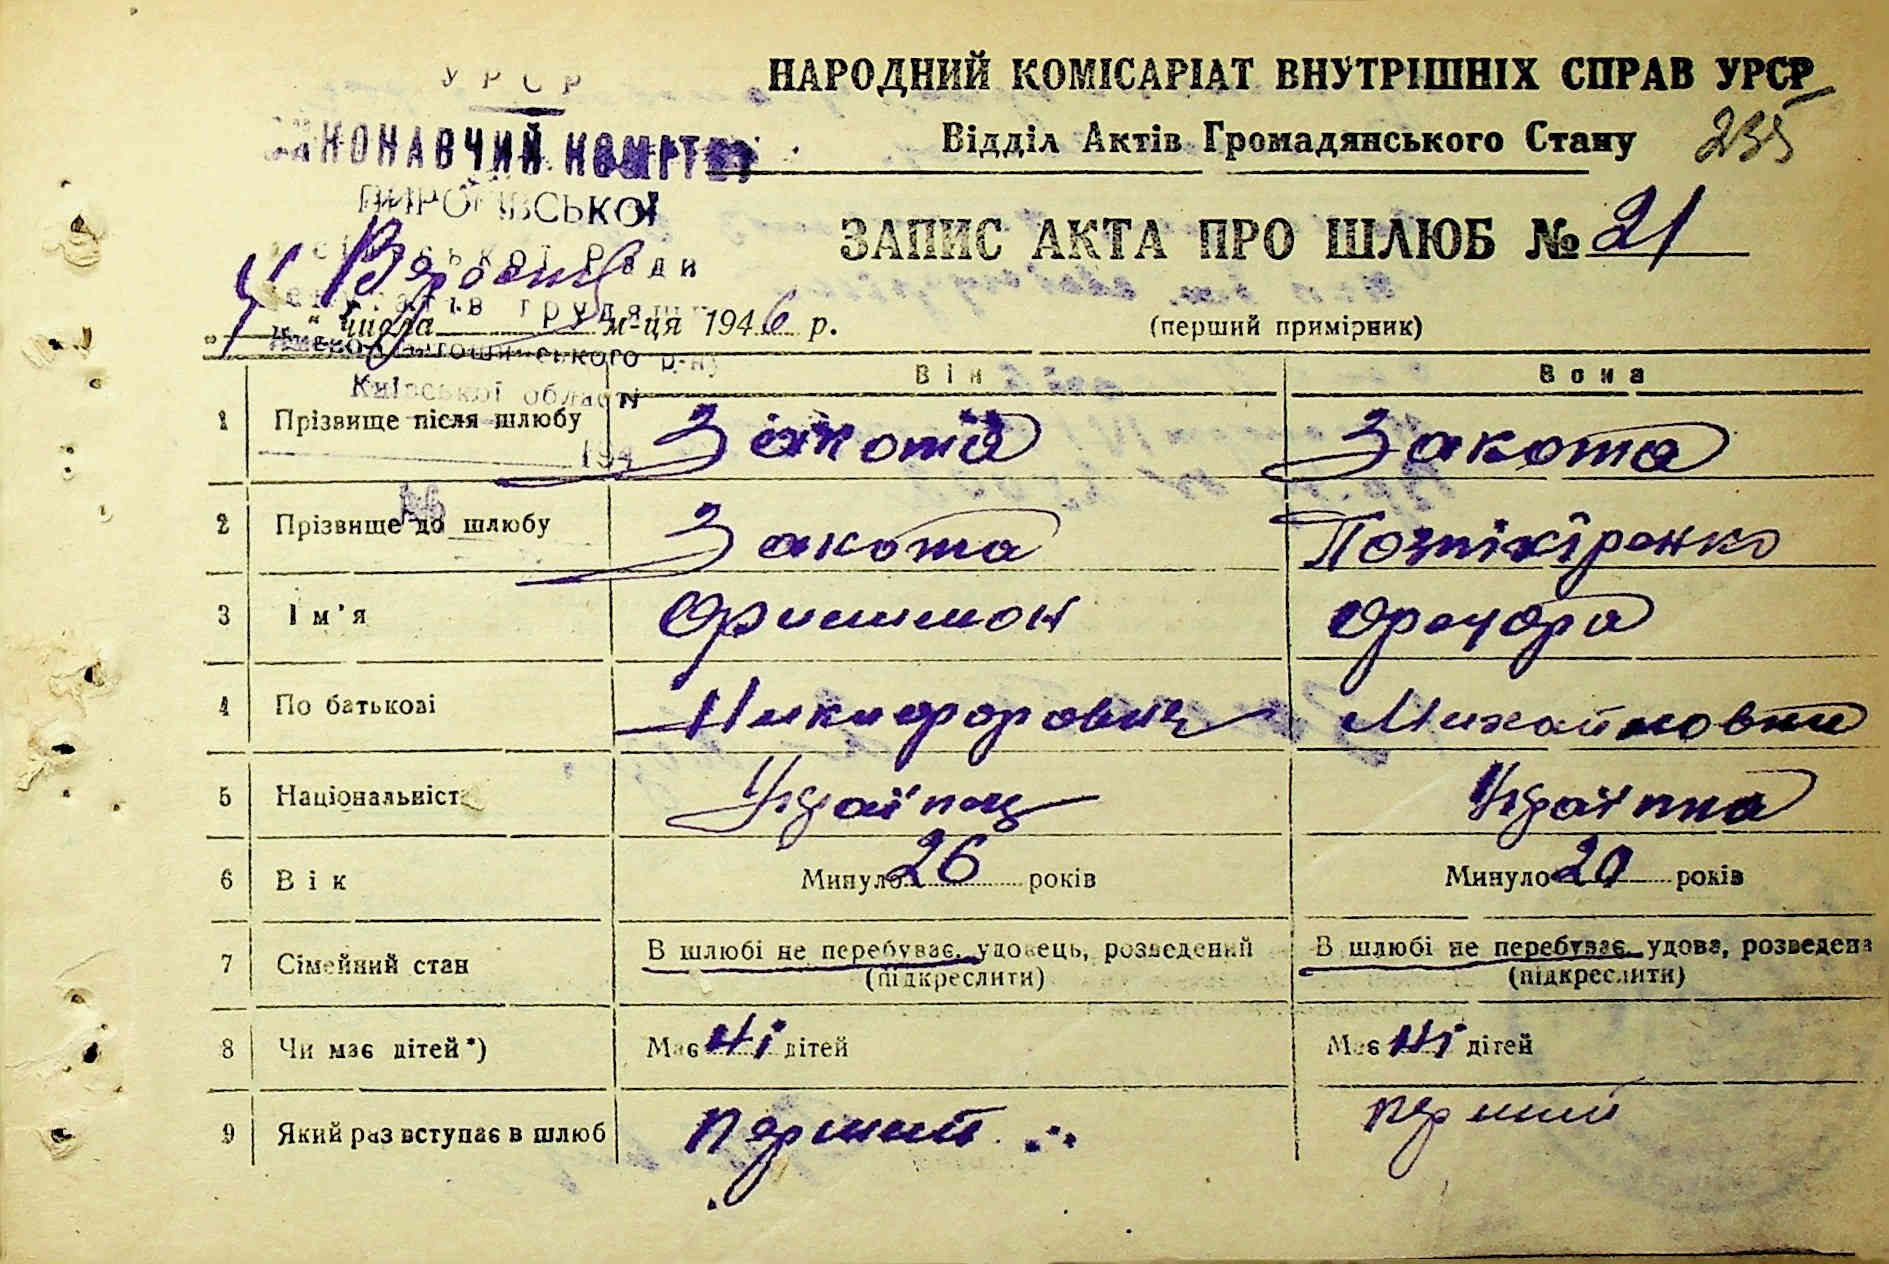 УРСР
НАРОДНИЙ КОМІСАРІАТ ВНУТРІШНІХ СПРАВ УРСР
Відділ Актів Громадянського Стану 235
ВИКОНАВЧИЙ КОМІТЕТ
ПИРОГІВСЬКОЇ
ЗАПИС АКТА ПРО ШЛЮБ № 21
сільської Ради
депутатів трудящих
4 " числа Вересня м-ця 1946 р. (перший примірник)
Києво-Святошинського р-ну
Київської області
194
№
Він Вона
1 Прізвище після шлюбу Закота Закота
2 Прізвище до шлюбу Закота
3 Ім'я Филимон
4 По батькові Никифорович Михайловна
5 Національність Українец Українка
6 Вік Минуло 26 років Минуло 20 років
7 Сімейний стан В шлюбі не перебуває, удовець, розведений (підкреслити) В шлюбі не перебуває, удова, розведена (підкреслити)
8 Чи має дітей*) Має ні дітей Має ні дітей
9 Який раз вступає в шлюб перший перший